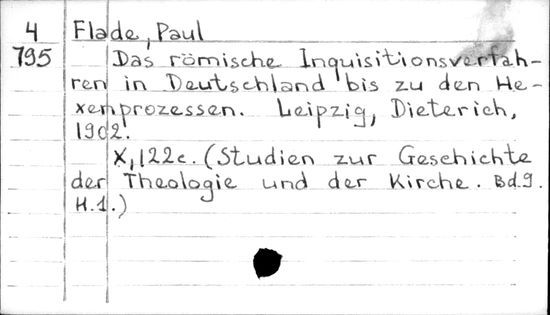 4 Flade, Paul
795 Das römische Inquisitionsverfah-
ren in Deutschland bis zu den He-
xenprozessen. Leipzig, Dieterich,
1902.
X, 122c. (Studien zur Geschichte
der Theologie und der Kirche. Bd.9.
H.1.)